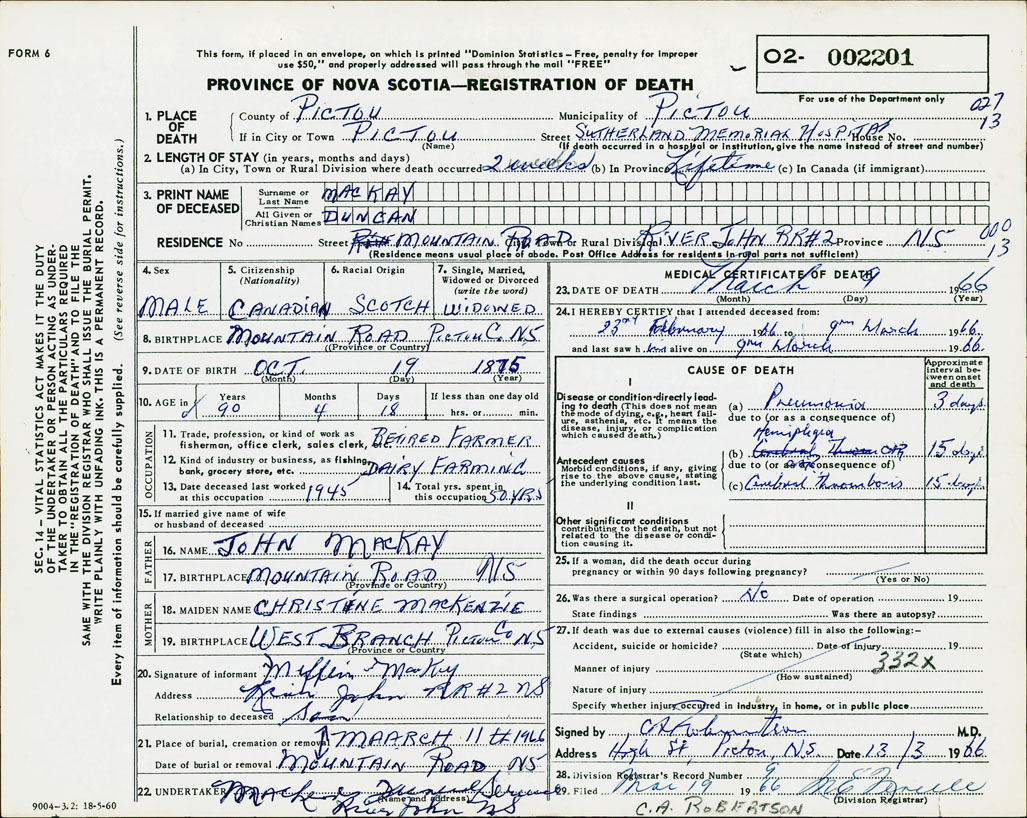 FORM 6
This form, if placed in an envelope, on which is printed "Dominion Statistics – Free, penalty for improper
use $50," and properly addressed will pass through the mail "FREE"
O2- 002201
For use of the Department only
PROVINCE OF NOVA SCOTIA—REGISTRATION OF DEATH
027
13
1. PLACE OF DEATH
County of PICTOU Municipality of PICTOU
If in City or Town PICTOU Street SUTHERLAND MEMORIAL HOSPITAL House No.
(Name) (If death occurred in a hospital or institution, give the name instead of street and number)
2. LENGTH OF STAY (in years, months and days)
(a) In City, Town or Rural Division where death occurred 2 weeks (b) In Province Lifetime (c) In Canada (if immigrant)
3. PRINT NAME OF DECEASED
Surname or Last Name MACKAY
All Given or Christian Names DUNCAN
RESIDENCE No Street MOUNTAIN ROAD City, Town or Rural Division RIVER JOHN RR#2 Province NS
000
13
(Residence means usual place of abode. Post Office Address for residents in rural parts not sufficient)
4. Sex MALE
5. Citizenship (Nationality) CANADIAN
6. Racial Origin SCOTCH
7. Single, Married, Widowed or Divorced (write the word) WIDOWED
8. BIRTHPLACE MOUNTAIN ROAD PICTOU Co. NS
(Province or Country)
9. DATE OF BIRTH OCT. 19 1875
(Month) (Day) (Year)
10. AGE in Years 90 Months 4 Days 18 If less than one day old hrs. or min.
OCCUPATION
11. Trade, profession, or kind of work as fisherman, office clerk, sales clerk, etc. RETIRED FARMER
12. Kind of industry or business, as fishing, bank, grocery store, etc. DAIRY FARMING
13. Date deceased last worked at this occupation 1945
14. Total yrs. spent in this occupation 50 YRS
15. If married give name of wife or husband of deceased
FATHER
16. NAME JOHN MACKAY
17. BIRTHPLACE MOUNTAIN ROAD NS
(Province or Country)
MOTHER
18. MAIDEN NAME CHRISTENE MACKENZIE
19. BIRTHPLACE WEST BRANCH PICTOU Co NS
(Province or Country)
20. Signature of informant MacKay
Address River John RR#2 NS
Relationship to deceased Son
21. Place of burial, cremation or removal MAARCH 11th 1966
Date of burial or removal MOUNTAIN ROAD NS
22. UNDERTAKER
(Name and address)
River John NS
9004-3.2: 18-5-60
MEDICAL CERTIFICATE OF DEATH
23. DATE OF DEATH March 9 1966
(Month) (Day) (Year)
24. I HEREBY CERTIFY that I attended deceased from:
23rd February 1966 to 9th March 1966.
and last saw h im alive on 9th March 1966.
CAUSE OF DEATH
Approximate interval between onset and death
I
Disease or condition directly leading to death (This does not mean the mode of dying, e.g., heart failure, asthenia, etc. It means the disease, injury, or complication which caused death.)
(a) Pneumonia 3 days
due to (or as a consequence of)
Hemiplegia
Antecedent causes
Morbid conditions, if any, giving rise to the above cause, stating the underlying condition last.
(b) Cerebral 15 days
due to (or as a consequence of)
(c) Cerebral thrombosis 15 days
II
Other significant conditions contributing to the death, but not related to the disease or condition causing it.
25. If a woman, did the death occur during
pregnancy or within 90 days following pregnancy?
(Yes or No)
26. Was there a surgical operation? No Date of operation 19
State findings Was there an autopsy?
27. If death was due to external causes (violence) fill in also the following:–
Accident, suicide or homicide? Date of injury 19
(State which)
332X
Manner of injury
(How sustained)
Nature of injury
Specify whether injury occurred in industry, in home, or in public place
Signed by CA Robertson M.D.
Address High St. Pictou, N.S. Date 13/3 1966
28. Division Registrar's Record Number 9
29. Filed Mar 19 1966
(Division Registrar)
C.A. ROBERTSON
SEC. 14 – VITAL STATISTICS ACT MAKES IT THE DUTY
OF THE UNDERTAKER OR PERSON ACTING AS UNDER-
TAKER TO OBTAIN ALL THE PARTICULARS REQUIRED
IN THE "REGISTRATION OF DEATH" AND TO FILE THE
SAME WITH THE DIVISION REGISTRAR WHO SHALL ISSUE THE BURIAL PERMIT.
WRITE PLAINLY WITH UNFADING INK. THIS IS A PERMANENT RECORD.
Every item of information should be carefully supplied. (See reverse side for instructions.)